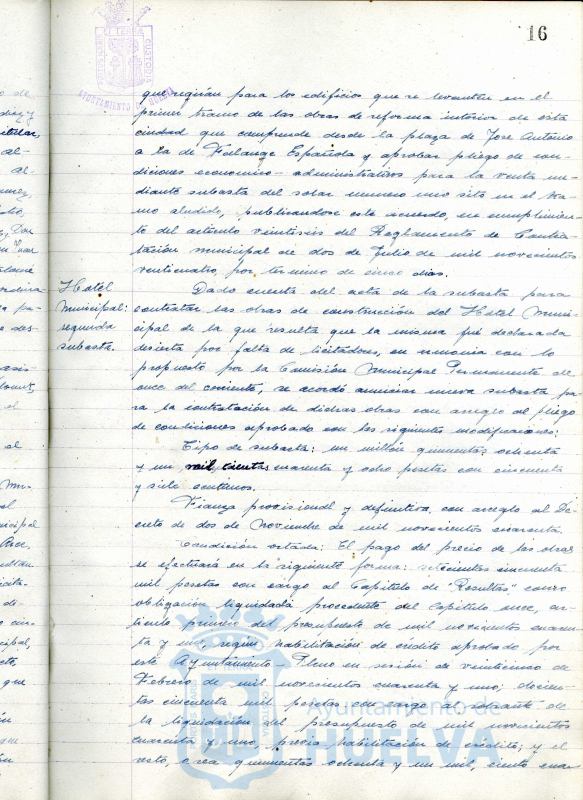 16
AYUNTAMIENTO DE HUELVA
que regirán para los edificios que se levanten en el
primer tramo de las obras de reforma interior de esta
ciudad que comprende desde la plaza de Jose Antonio
a la de Falange Española y aprobar pliego de con-
diciones economico-administrativas para la venta me-
diante subasta del solar numero uno sito en el tra-
mo aludido, publicandose este acuerdo, en cumplimien-
to del articulo veintiseis del Reglamento de Contra-
tación municipal de dos de Julio de mil novecientos
venticuatro, por termino de cinco dias.
Hotel
Municipal:
segunda
subasta.
Dada cuenta del acta de la subasta para
contratar las obras de construcción del Hotel Muni-
cipal de la que resulta que la misma fué declarada
desierta por falta de licitadores, en armonia con lo
propuesto por la Comisión Municipal Permanente de
once del corriente, se acordó anunciar nueva subasta pa-
ra la contratación de dichas obras con arreglo al pliego
de condiciones aprobado con las siguientes modificaciones:
Tipo de subasta: un millón quinientas ochenta
y un mil, cientas cuarenta y ocho pesetas con cincuenta
y siete centimos.
Fianza provisional y definitiva, con arreglo al De-
creto de dos de Noviembre de mil novecientos cuarenta.
Condición octava: El pago del precio de las obras
se efectuará en la siguiente forma: setecientas cincuenta
mil pesetas con cargo al Capitulo de "Resultas" como
obligación liquidada procedente del Capitulo once, ar-
ticulo primero del presupuesto de mil novecientos cuaren-
ta y uno, según habilitación de credito aprobado por
este Ayuntamiento Pleno en sesión de veinticinco de
Febrero de mil novecientos cuarenta y uno; docien-
tas cincuenta mil pesetas con cargo al sobrante de
la liquidación del presupuesto de mil novecientos
cuarenta y uno, previa habilitación de credito; y el
resto, o sea quinientas ochenta y un mil, ciento cua-
Ayuntamiento de
HUELVA